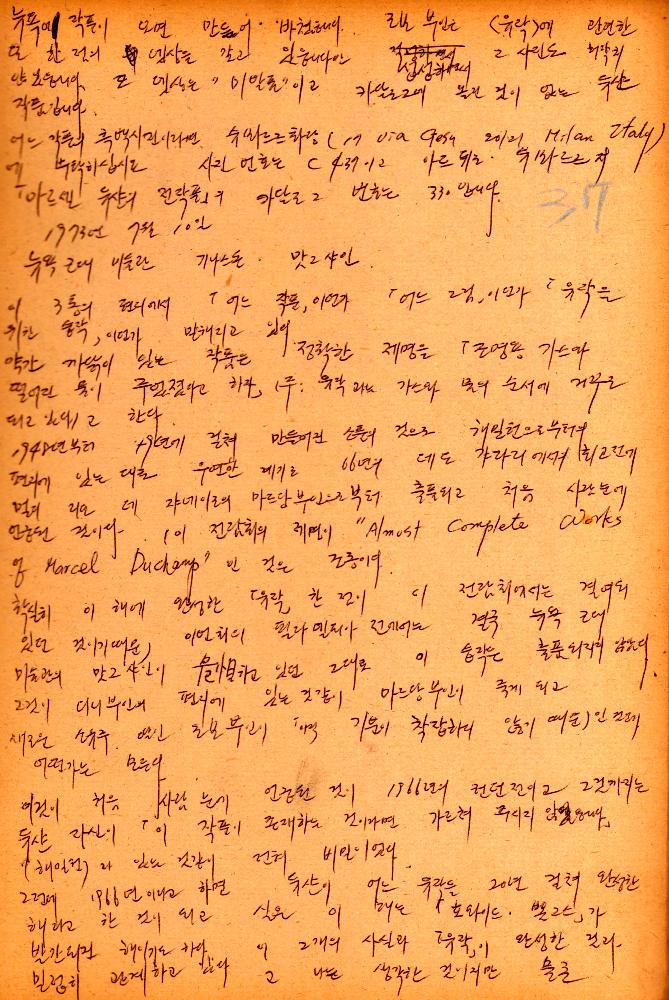 뉴욕에 작품이 오면 만들어 바쳤습니다. 로보 부인은 (유락)에 관련한
또 한 점의 뎃상을 갖고 있습니다만 그 사진도 허락치
안 했습니다. 또 뎃상은 "미발표"이고 카달로그에 본건 것이 없는 듀샨
작품입니다.
어느 작품의 흑백사진이라면 슈바르츠화랑 (17 via Gesu 20121 Milan Italy)
에 부탁하십시요 사진 번호는 C 439이고 아르튜로·슈바르츠 저
「마르셀 듀샨의 전작품」의 카달로그 번호는 330입니다. 37
1973년 7월 10일
뉴욕 근대 미술관 기나스톤·맛그샤인
이 3통의 편지에서 「어느 작품」이던가 「어느 그림」이던가 「유락을
위한 습작」이던가 말해지고 있어
약간 까닭이 있는 작품은 정확한 제명을 「조명용 가스와
떨어진 물이 주어졌다고 하자」 (주: 유작과는 가스와 물의 순서에 거꾸로
되고 있다)고 한다.
1948년부터 49년에 걸쳐 만들어진 소품의 것으로 해밀턴으로부터의
편지에 있는 대로 우연한 계기로 66년의 테도 갸라리에서의 회고전에
멀리 리오 데 쟈네이로의 마르당부인으로부터 출품되고 처음 사람눈에
안음된 것이다. (이 전람회의 제명이 "Almost Complete Works
of Marcel Duchamp" 인 것은
확실히 이 해에 완성한 「유락」 한 점이 이 전람회에서는 결여되
있던 것이기때문) 이번회의 필라델피아 전에서는 결국 뉴욕 근대
미술관의 맛그샤인이 하고 있던 그대로 이 습작은 출품되지 않았다.
그것이 디니부인의 편지에 있는 것같이 마르당부인이 죽게 되고
새로운 소유주 로보부인이 「아직 기분이 착잡하지 않기 때문」인 것인지
어떤가는 모른다
이것이 처음 사람 눈에 안음된 것이 1966년의 런던전이고 그것까지는
듀샨 자신이 「이 작품이 존재하는 것이라면 가르쳐 주시지 않았습니다」
(해밀턴)라 있는 것같이 전혀 비밀이었다
그런데 1966년이라고 하면 듀샨이 어느 유락을 20년 걸쳐 완성한
해라고 한 것이 되고 실은 이 때는 「호와이트·복스」가
발간되던 해이기도 하다. 이 2개의 사실과 「유락」이 완성한 것과
밀접히 관계하고 있다 고 나는 생각한 것이지만 물론